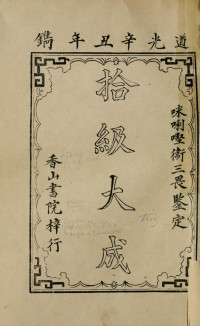 道光辛丑年鐫
咪唎堅衛三畏鑒定
拾級大成
香山書院梓行